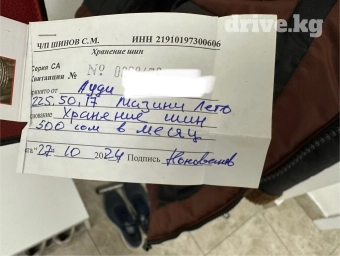 drive.kg
ЧП ШИНОВ С.М. ИНН 21910197300606
Хранение шин
Серия СА
Квитанция № №
Принято от Ауди
225.50.17 Лето
Хранение шин
500 сом в месяц
"27" 10 2024 Подпись